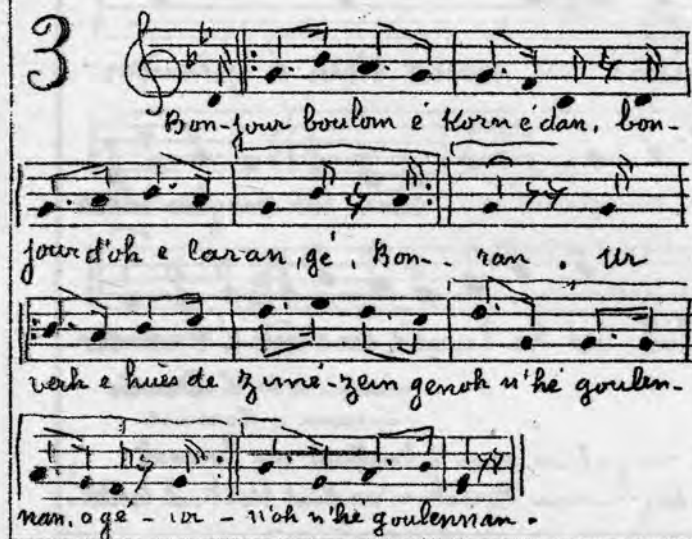 3
Bon-jour boulom é Korn é dan, bon-
jour d'oh e laran, gé, Bon- - ran . Ur
verh e huès de zimé-zein genoh n'hé goulen-
nan, o gé - ur - n'oh n'hé goulennan.